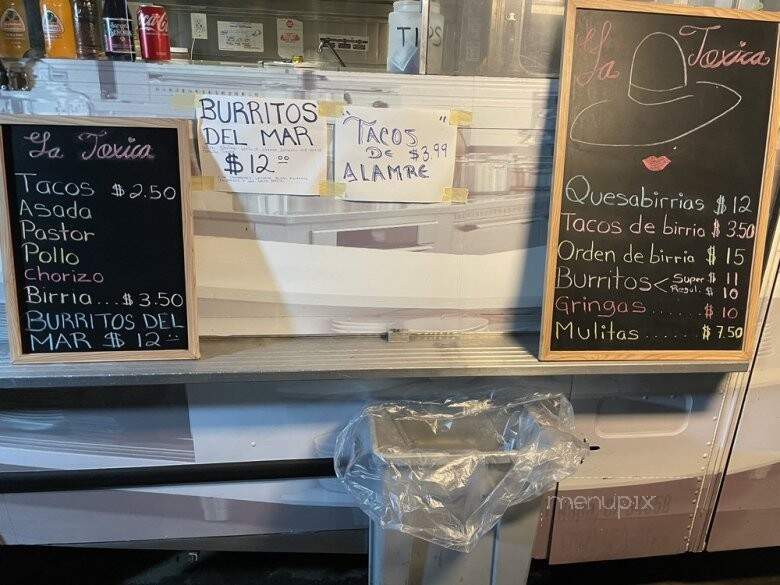 Coca-Cola
TIPS
La Toxica
Tacos $2.50
Asada
Pastor
Pollo
Chorizo
Birria...$3.50
BURRITOS DEL
MAR $12.00
BURRITOS
DEL MAR
$12.00
"TACOS"
DE $3.99
ALAMRE
La Toxica
Quesabirrias $12
Tacos de birria $3.50
Orden de birria $15
Burritos< Super $11
Regul: $10
Gringas ...... $10
Mulitas ...... $7.50
menupix